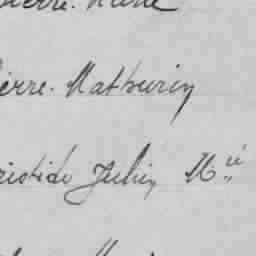 ierre. Marie
ierre. Mathurin
ristide Julien M.ie